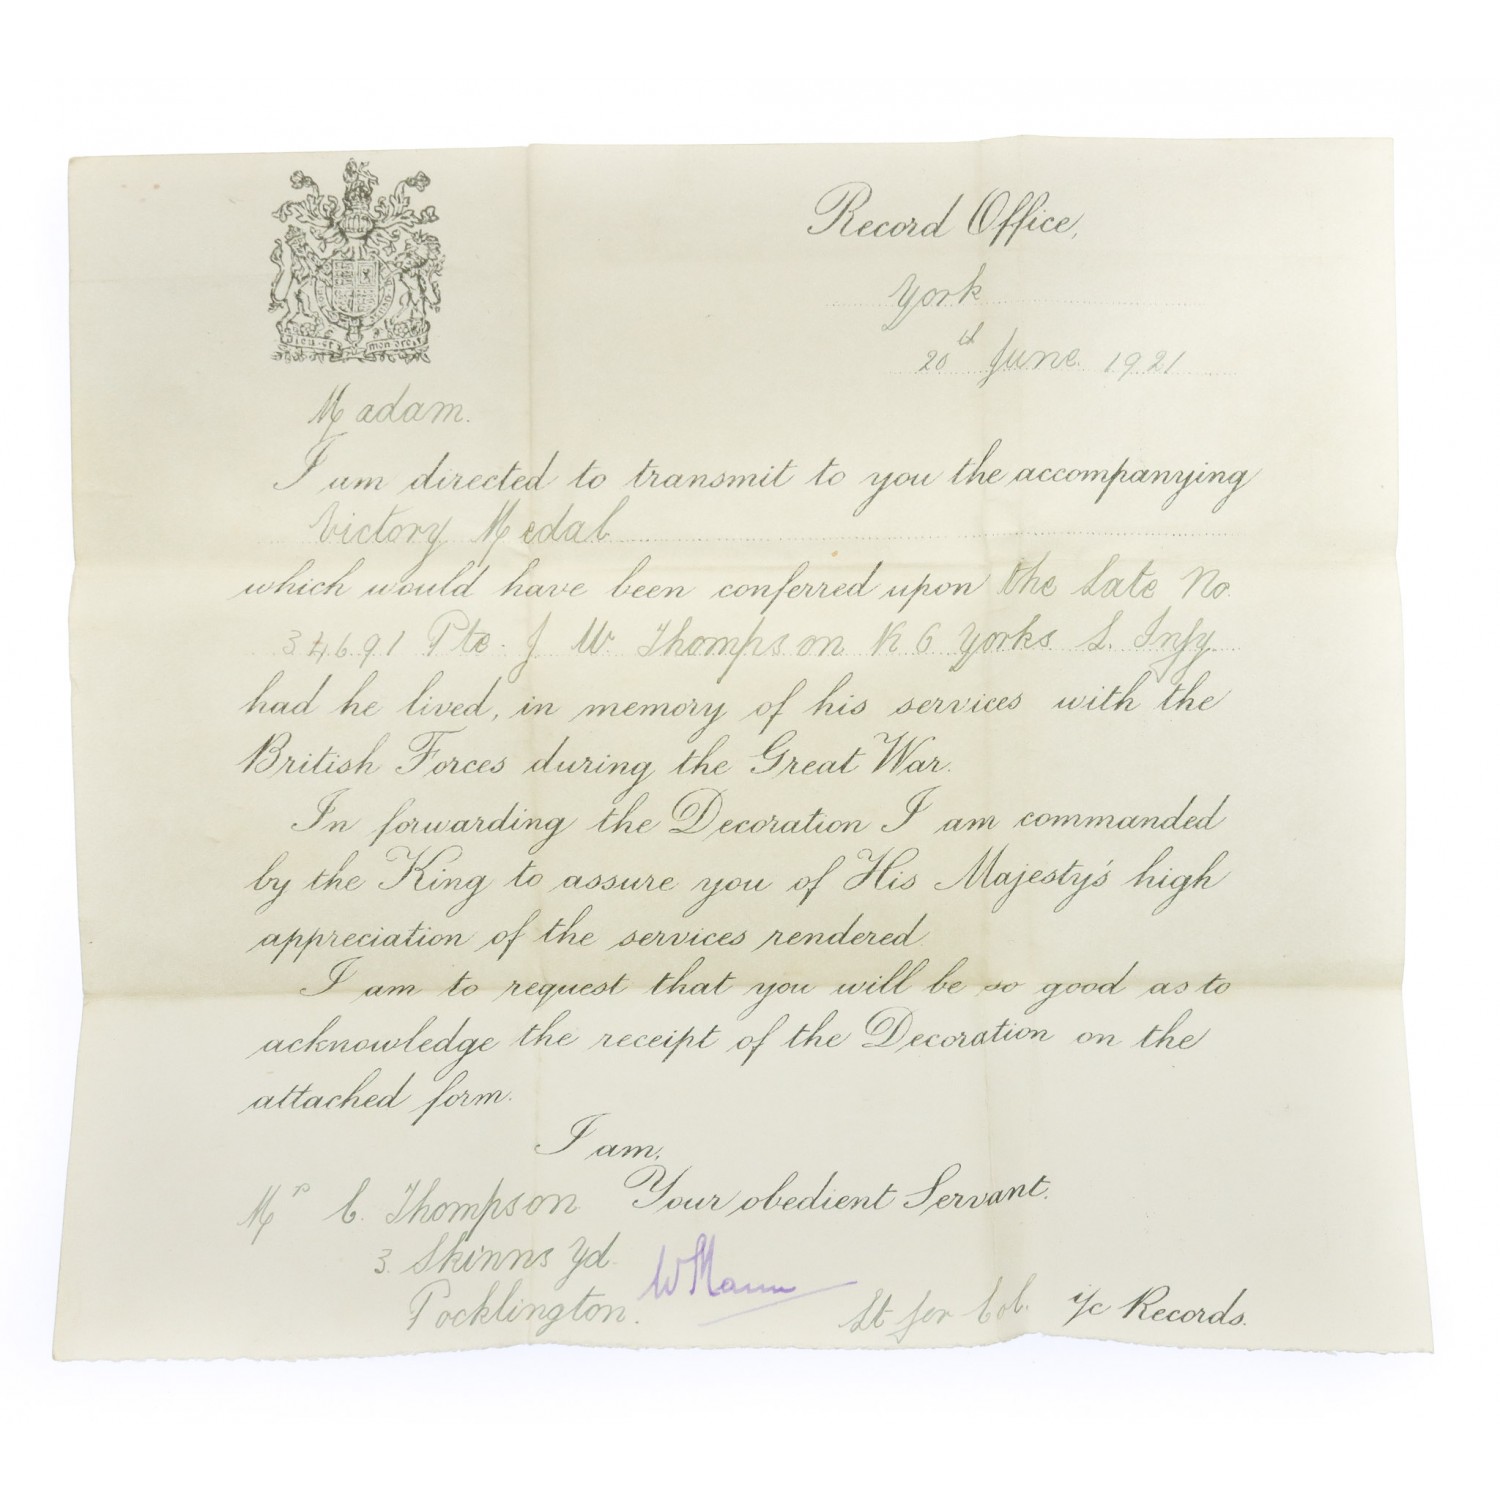 Dieu et mon droit
Record Office,
York
20th June 1921
Madam.
I am directed to transmit to you the accompanying
Victory Medal
which would have been conferred upon the late No.
34691 Pte. J W. Thompson K O Yorks. L. Infy.
had he lived, in memory of his services with the
British Forces during the Great War.
In forwarding the Decoration I am commanded
by the King to assure you of His Majesty's high
appreciation of the services rendered.
I am to request that you will be so good as to
acknowledge the receipt of the Decoration on the
attached form.
I am,
Your obedient Servant.
Mrs C. Thompson
3. Skinns Yd.
Pocklington.
W Mann
Lt for Col. i/c Records.